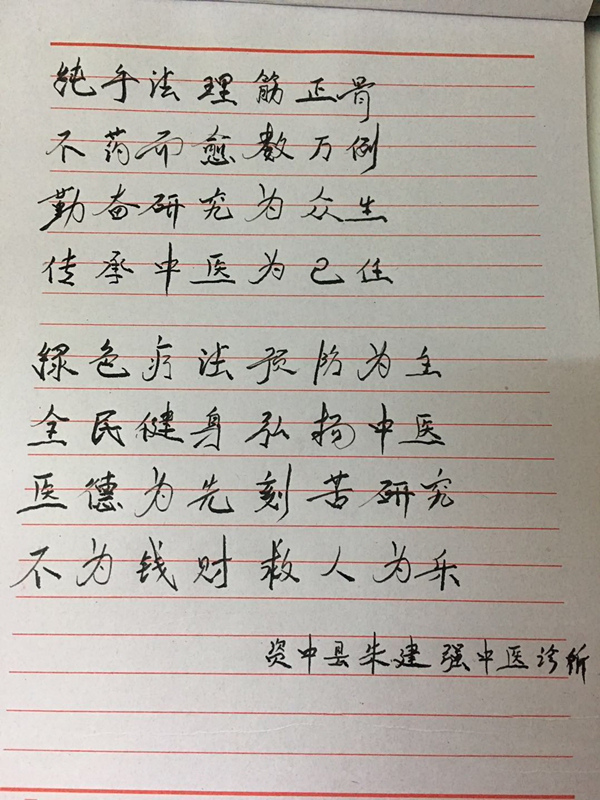 纯手法理筋正骨
不药而愈数万例
勤奋研究为众生
传承中医为己任
绿色疗法预防为主
全民健身弘扬中医
医德为先刻苦研究
不为钱财救人为乐
资中县朱建强中医诊所